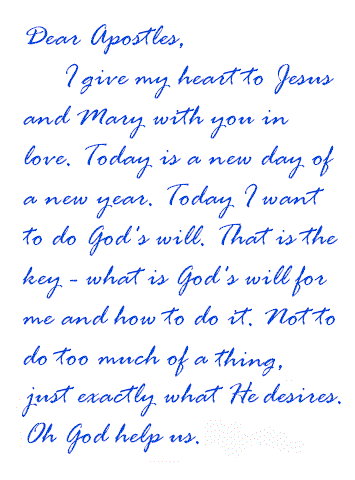 Dear Apostles,
I give my heart to Jesus
and Mary with you in
love. Today is a new day of
a new year. Today I want
to do God's will. That is the
key - what is God's will for
me and how to do it. Not to
do too much of a thing,
just exactly what He desires.
Oh God help us.